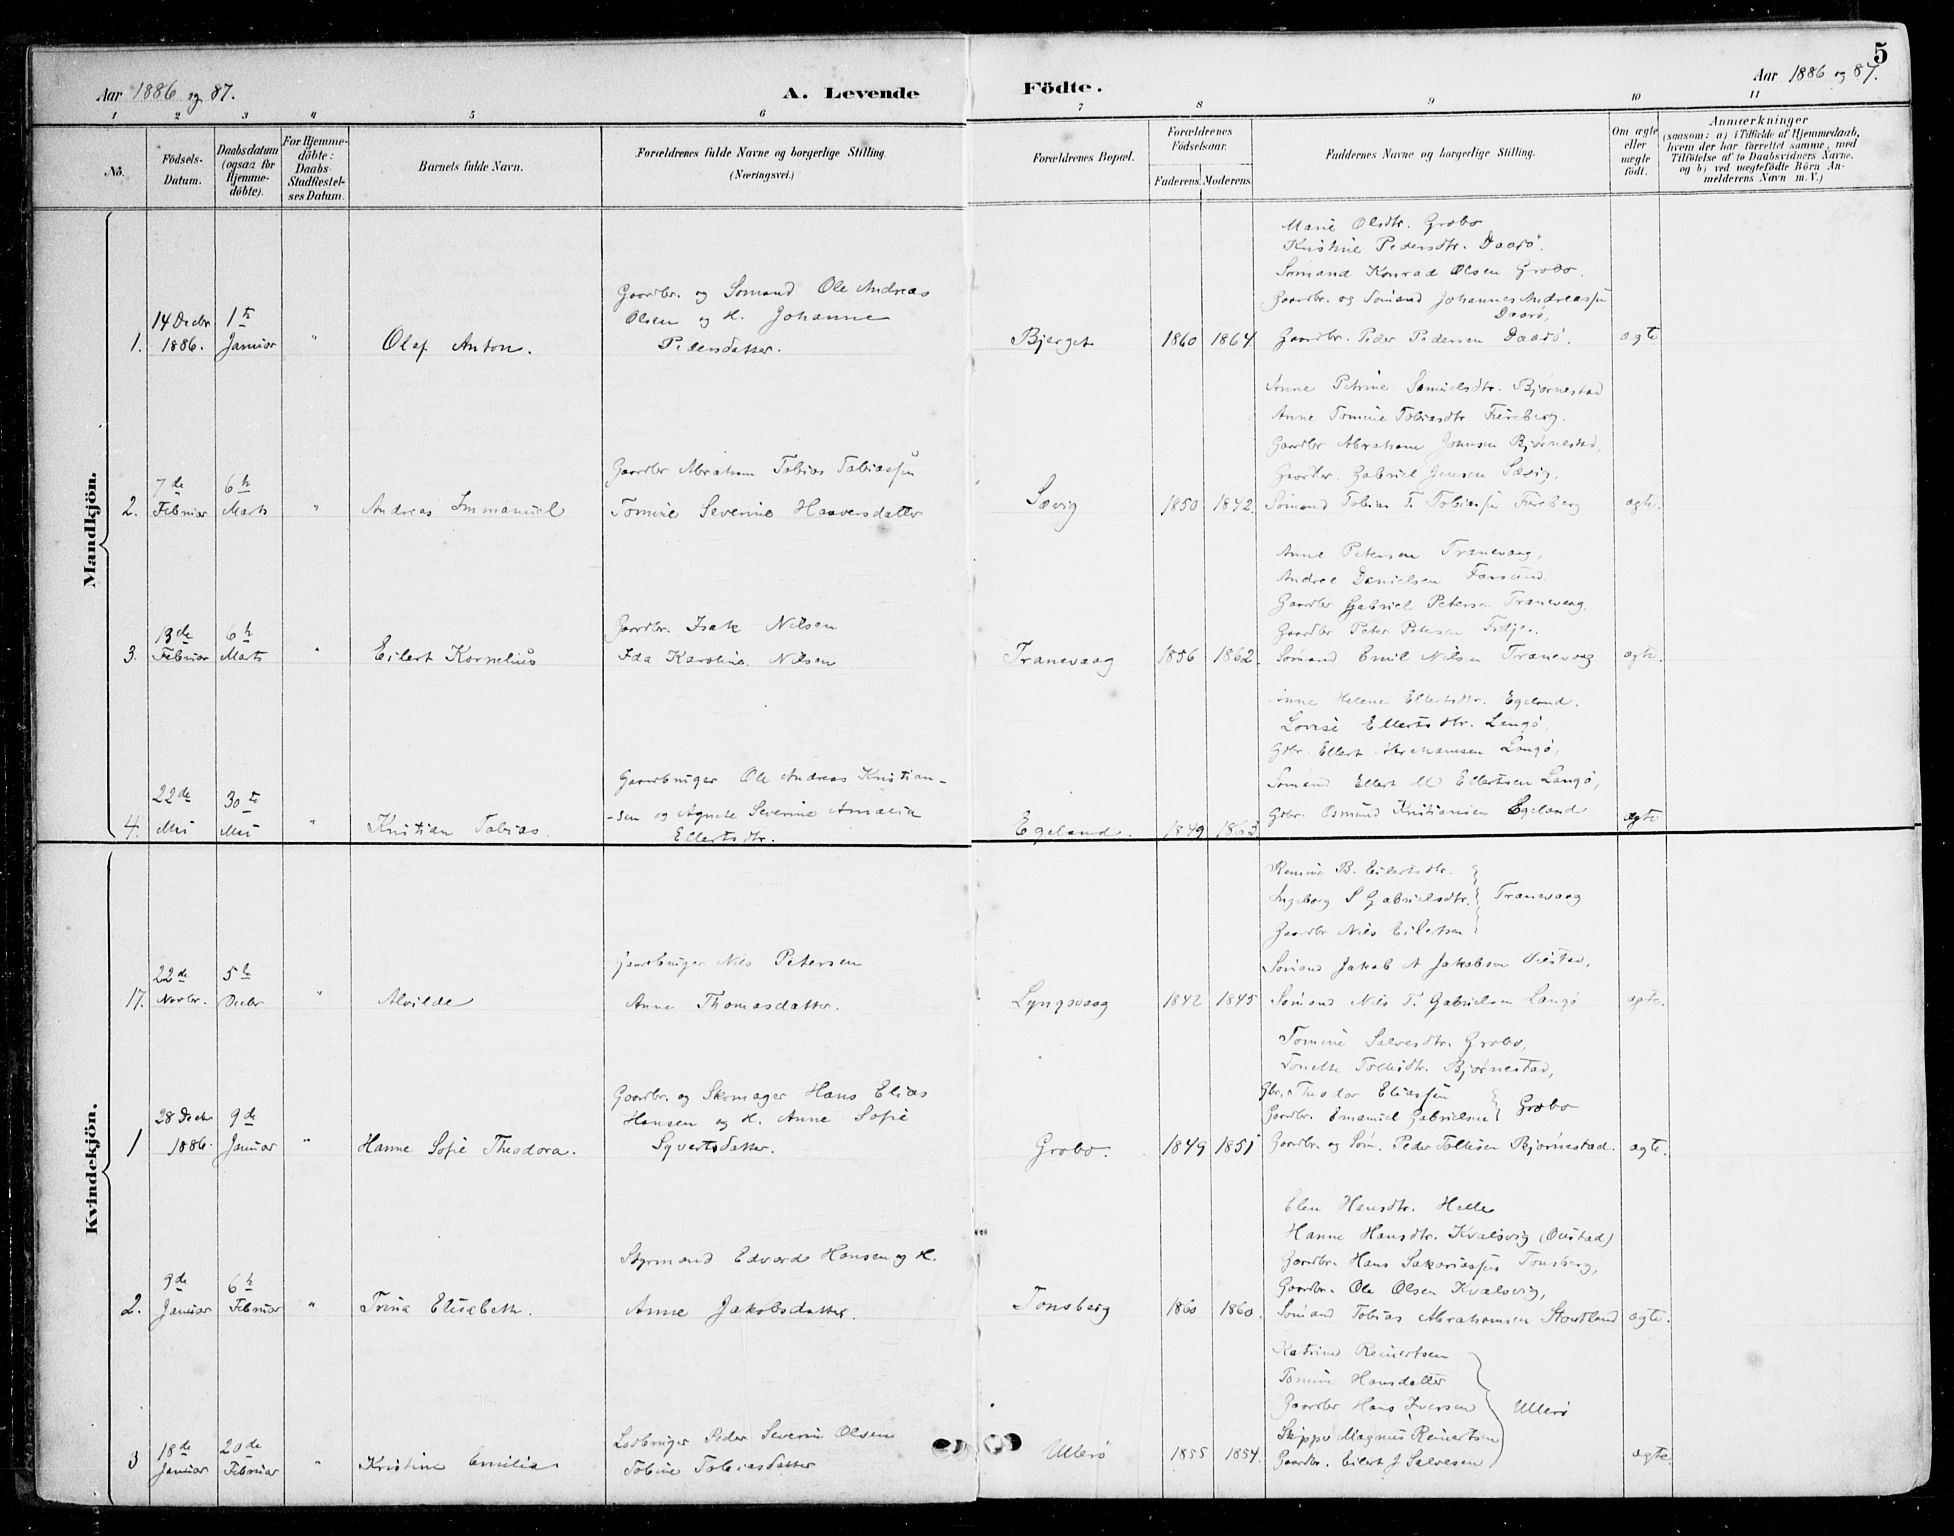 5
Aar 1886 og 87.
A. Levende Födte.
Aar 1886 og 87.
1 2 3 4 5 6 7 8 9 10 11
No.
Födsels-Datum.
Daabsdatum (ogsaa for Hjemmedöbte).
For Hjemmedöbte: Daabs-Stadfæstelses Datum.
Barnets fulde Navn.
Forældrenes fulde Navne og borgerlige Stilling. (Næringsvei.)
Forældrenes Bopæl.
Forældrenes Födselsaar.
Faderens. Moderens.
Faddernes Navne og borgerlige Stilling.
Om ægte eller uægte födt.
Anmærkninger
(saasom: a) i Tilfælde af Hjemmedaab,
hvem der har forrettet samme, med
Tilföielse af to Daabsvidners Navne.
og b) ved uægtefödte Börn An-
melderens Navn m. V.)
Mandkjön.
Marie Olsdtr. Grobo
Kristine Pedersdtr. Daarø.
Sømand Konrad Olsen Grobo.
Gaardbr. og Sømand Ole Andreas
Gaardbr. og Sømand Johannes Andreassen
Daarø,
14 Decbr 1te
Olsen og H. Johanne
1. 1886. Januar " Olaf Anton. Pedersdatter. Bjerget 1860 1864 Gaardbr. Peder Pedersen Daarø. ægte
Anne Petrine Samuelsdtr. Bjørnestad
Anne Tomine Tobiasdtr Fureberg.
Gaardbr Abraham Johnsen Bjørnestad,
Gaardbr Abraham Tobias Tobiassen
Gaardbr. Gabriel Jensen Sævig,
7de 6te
2. Februar Marts " Andreas Immanuel Tomine Severine Haaversdatter Sævig 1850 1842. Sømand Tobias T. Tobiassen Fureberg ægte.
Anne Petersen Tranevaag,
Andrea Danielsen Farsund.
Gaardbr Gabriel Petersen Tranevaag.
Gaardbr. Isak Nilsen
Gaardbr Peter Petersen Fidje.
13de 6te
3. Februar Marts " Eilert Kornelius Ida Karoline Nilsen Tranevaag 1856 1862. Sømand Emil Nilsen Tranevaag ægte.
Anne Helene Ellertsdtr. Egeland.
Lovise Ellertsdtr. Langø,
Gdbr. Ellert Abrahamsen Langø,
Gaardbruger Ole Andreas Kristian-
Sømand Ellert M Ellertsen Langø,
22de 30te
-sen og Agnete Severine Amalia
4. Mai Mai " Kristian Tobias. Ellertsdtr. Egeland. 1849 1863 Gdbr. Osmund Kristiansen Egeland ægte
Kvindekjön.
Remine B. Eilertsdtr.
Ingeborg S Gabrielsdtr. Tranevaag
Gaardbr Nils Eilertsen
Gaardbruger Nils Petersen
Sømand Jakob A Jakobsen
22de 5te
17. Novbr. Decbr " Alvilde Anne Thomasdatter. Lyngsvaag 1842 1845 Sømand Nils T. Gabrielsen Langø ægte.
Tomine Salvesdtr. Grobo,
Tonette Tollisdtr. Bjørnestad,
Gaardbr. og Skomager Hans Elias
Gbr. Theodor Eliassen
Hansen og H. Anne Sofie
Gaardbr. Emanuel Gabrielsen Grobo
28 Decbr 9de
1 1886. Januar " Hanne Sofie Theodora. Syvertsdatter. Grobo. 1849 1851 Gaardbr. og Søm. Peder Tollisen Bjørnestad. ægte.
Elen Hansdtr. Helle
Hanne Hansdtr. Kvalsvig (Oustad)
Styrmand Edvard Hansen og H.
Gaardbr. Hans Sakariassen Tonsberg,
Gaardbr. Ole Olsen Kvalsvig,
9de 6te
2. Januar Februar " Trina Elisabeth. Anne Jakobsdatter. Tonsberg 1860 1860. Sømand Tobias Abrahamsen Stoutland ægte.
Katrine Reinertsen
Tomine Hansdatter
Gaardbr Hans Iversen Ullerø
Lodbruger Peder Severin Olsen
Skipper Magnus Reinertsen
18de 20de
3 Januar Februar " Kristine Emilia Tobine Tobiasdatter Ullerø 1855 1854. Gaardbr. Eilert J Salvesen ægte.